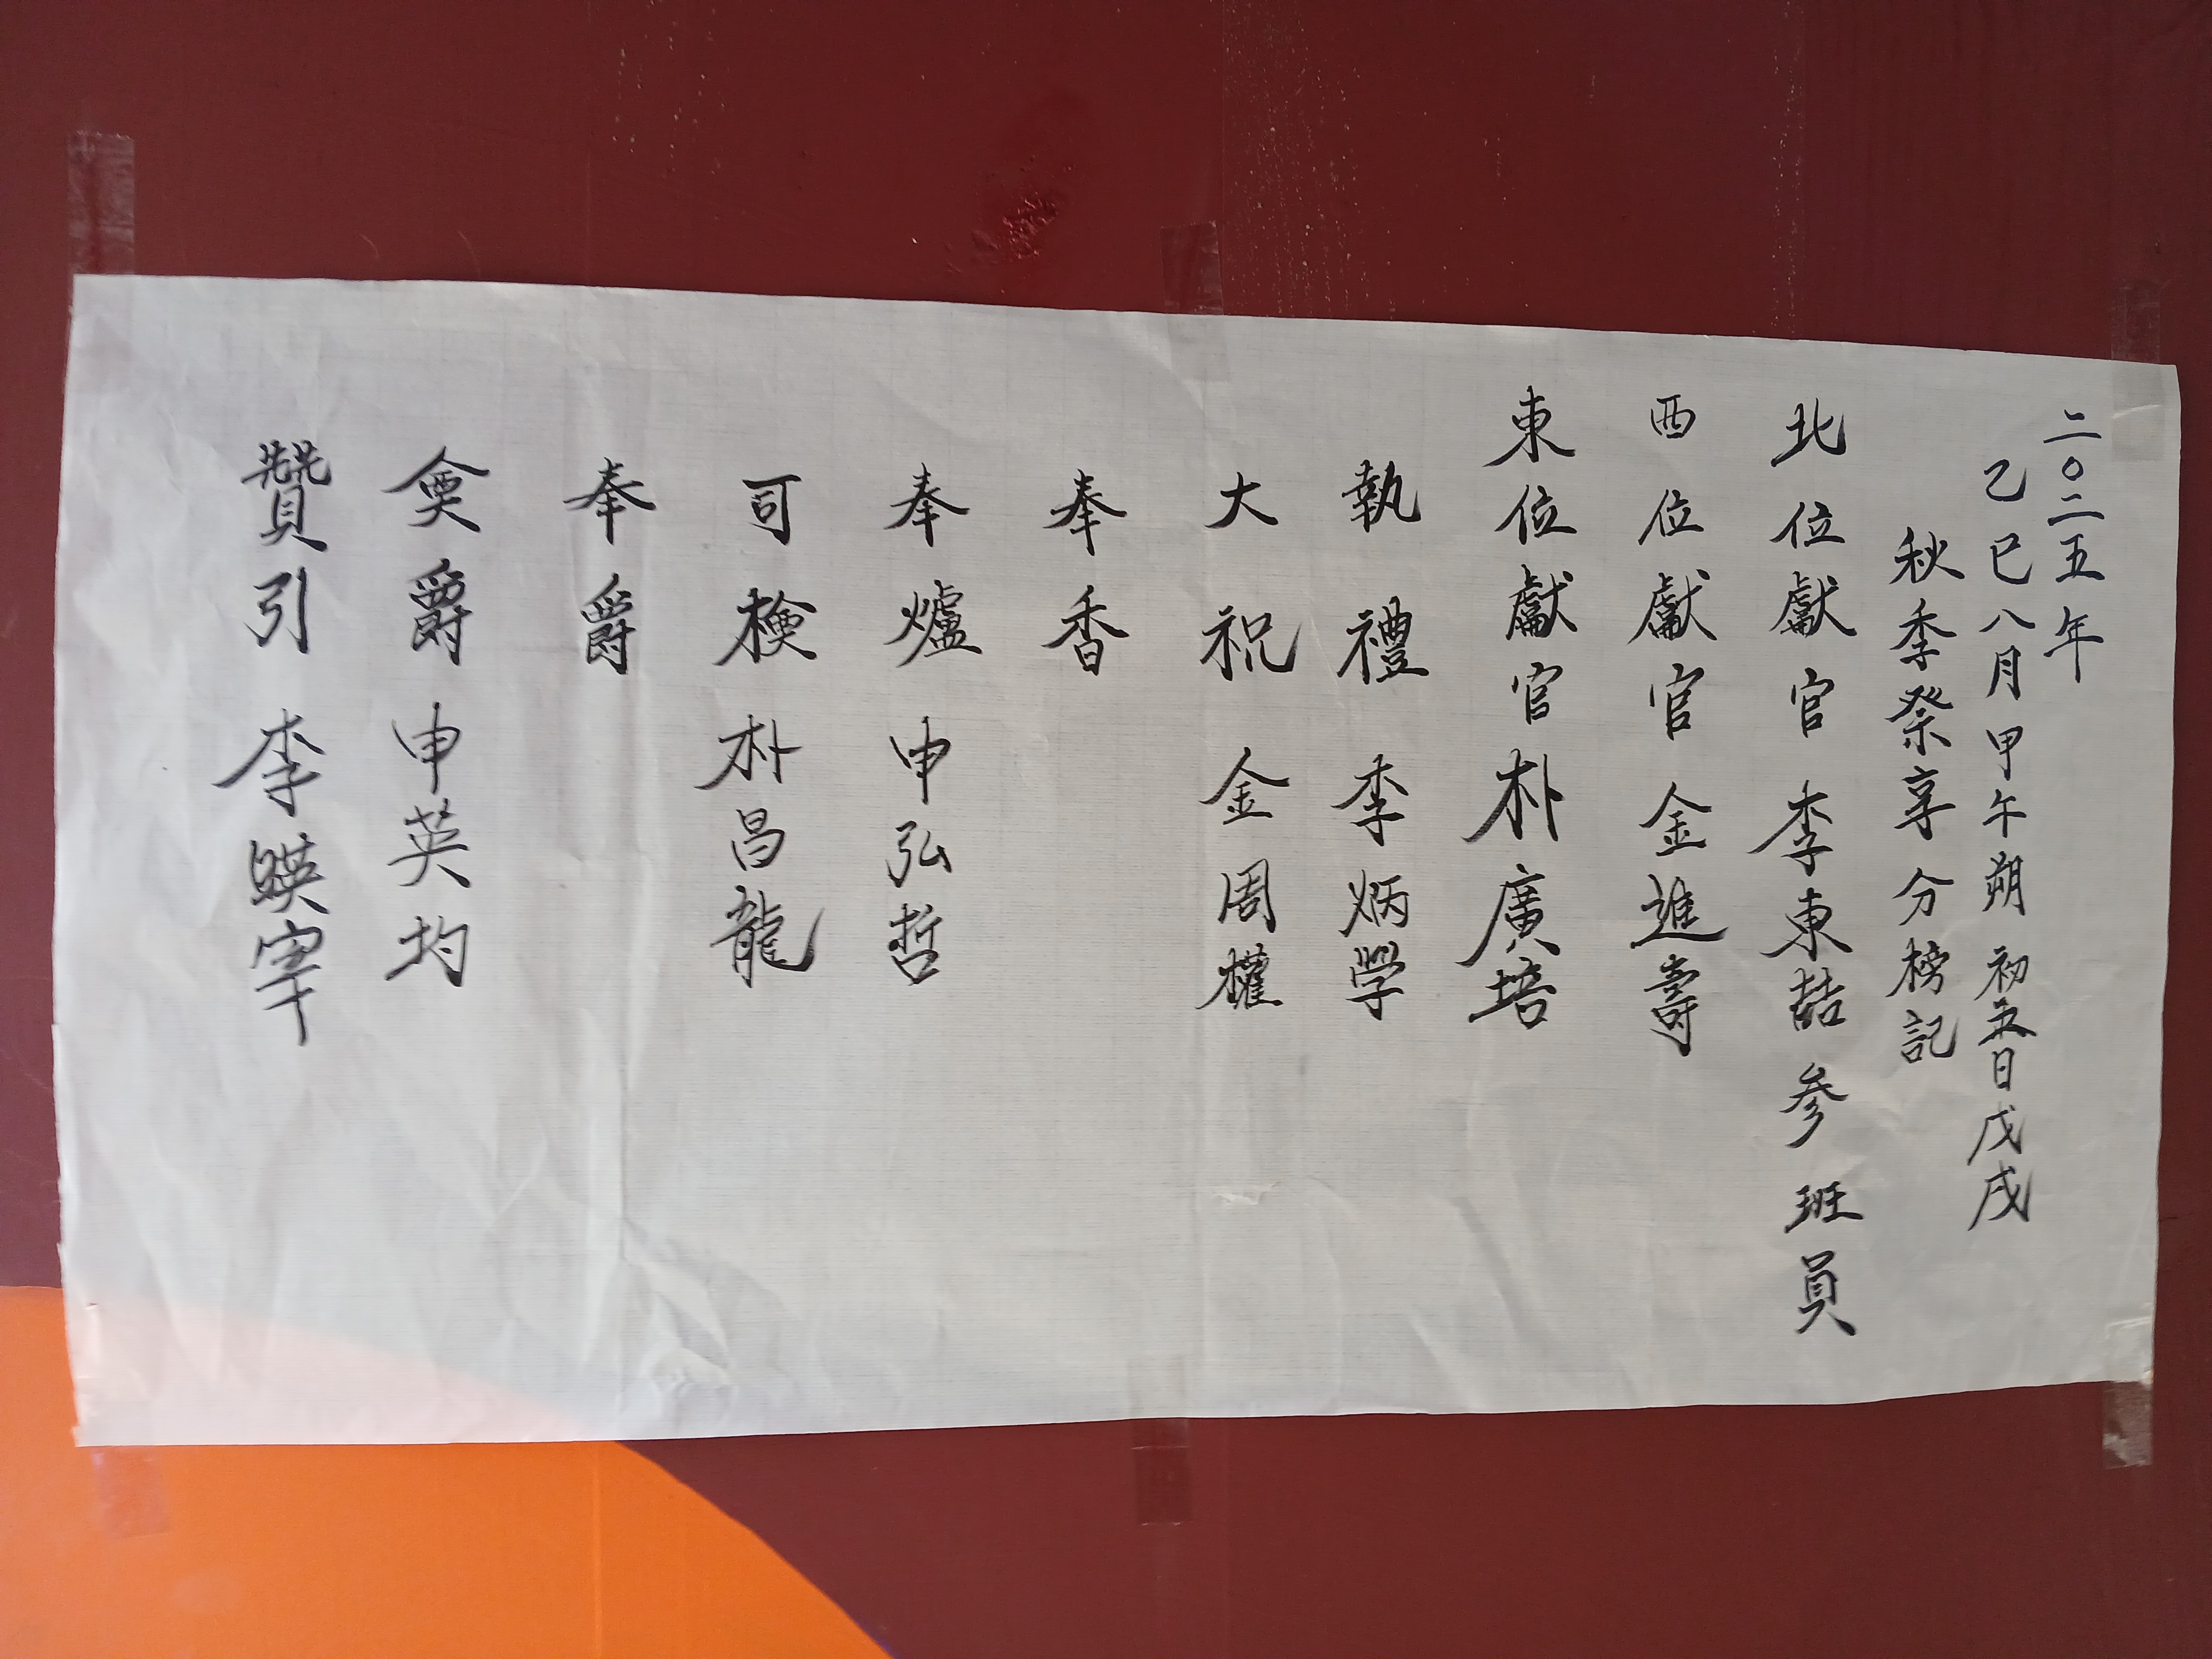 二〇二五年
乙巳八月甲午朔 初五日戊戌
秋季祭享分榜記
北位獻官 李東喆 参班員
西位獻官 金進壽
東位獻官 朴廣培
執禮 李炳學
大祝 金周權
奉香
奉爐 申弘哲
司検 朴昌龍
奉爵
奠爵 申英均
贊引 李暎宰